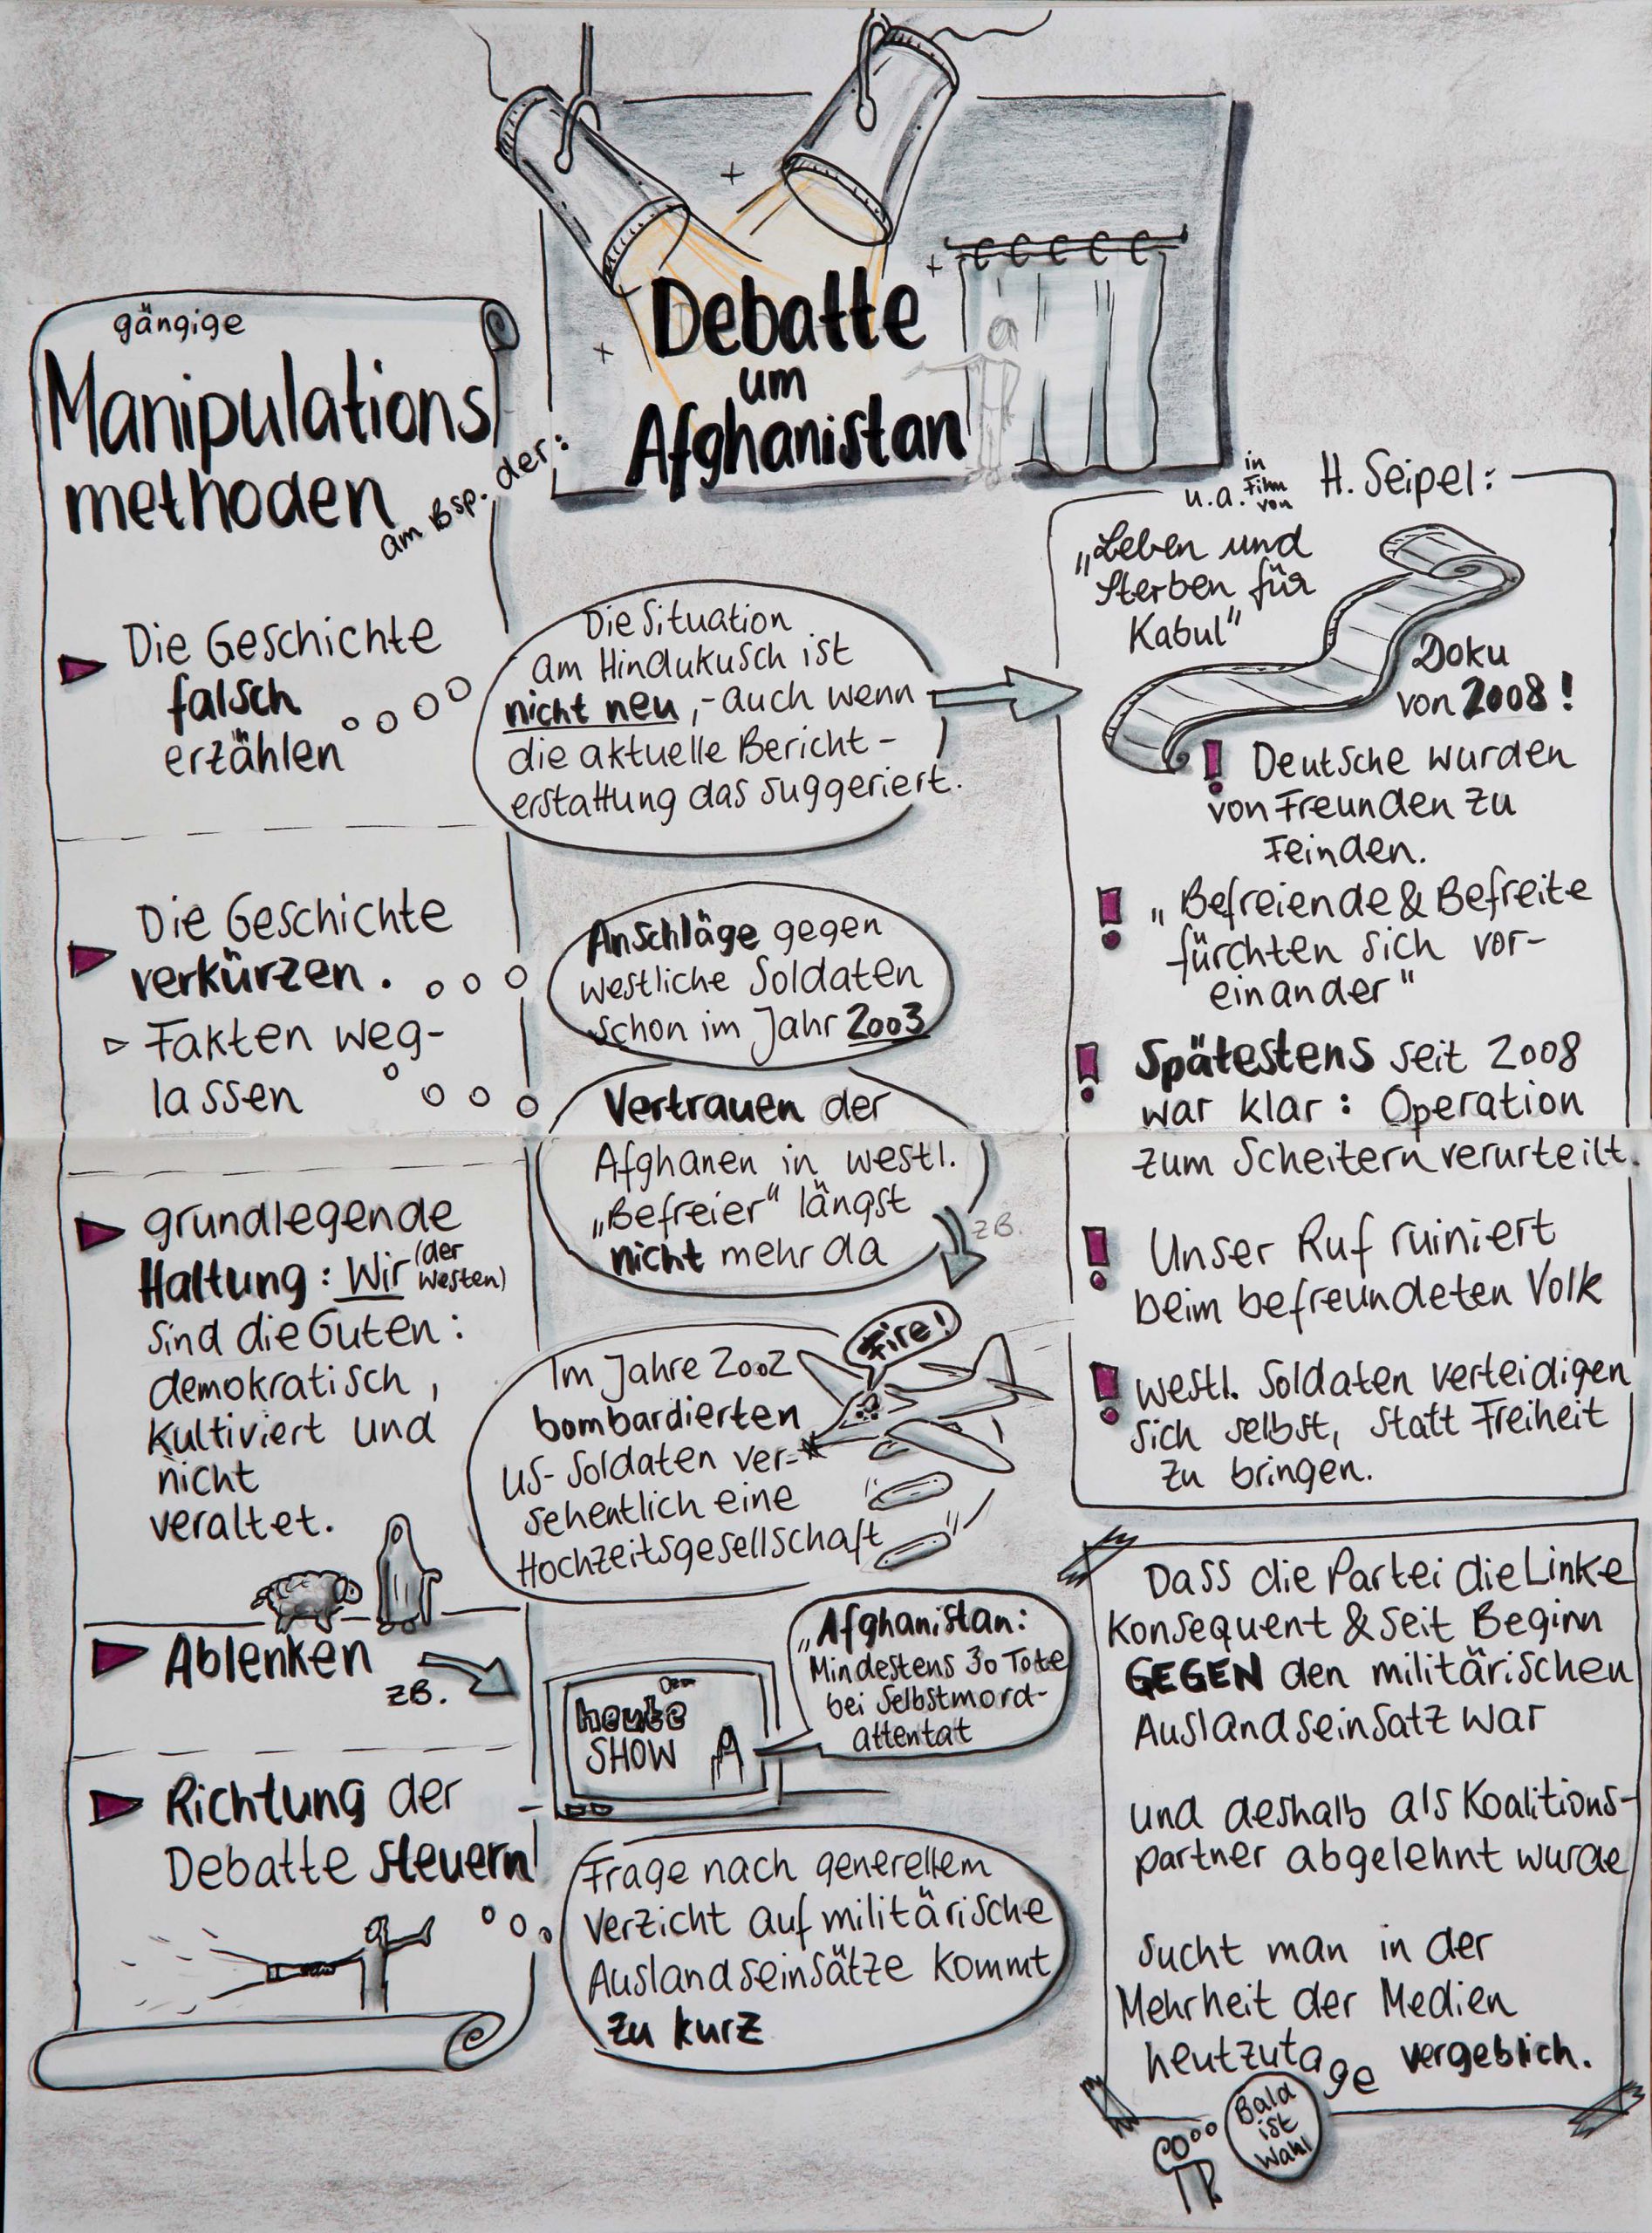 gängige
Manipulations
methoden
am Bsp. der:
Debatte
um
Afghanistan
Die Geschichte
falsch
erzählen
Die Situation
am Hindukusch ist
nicht neu, - auch wenn
die aktuelle Bericht-
erstattung das suggeriert.
Die Geschichte
verkürzen.
Fakten weg-
lassen
Anschläge gegen
westliche Soldaten
schon im Jahr 2003
Vertrauen der
Afghanen in westl.
„Befreier“ längst
nicht mehr da
zB.
grundlegende
Haltung: Wir (der
Westen)
sind die Guten:
demokratisch,
kultiviert und
nicht
veraltet.
Fire!
Im Jahre 2002
bombardierten
US-Soldaten ver-
sehentlich eine
Hochzeitsgesellschaft
Ablenken
zB.
heute
SHOW
„Afghanistan:
Mindestens 30 Tote
bei Selbstmord-
attentat
Richtung der
Debatte steuern!
Frage nach generellem
Verzicht auf militärische
Auslandseinsätze kommt
zu kurz
u.a. in
Film
von
H. Seipel:
„Leben und
Sterben für
Kabul“
Doku
von 2008!
! Deutsche wurden
von Freunden zu
Feinden.
! „Befreiende & Befreite
fürchten sich vor-
einander“
! Spätestens seit 2008
war klar: Operation
zum Scheitern verurteilt.
! Unser Ruf ruiniert
beim befreundeten Volk
! westl. Soldaten verteidigen
sich selbst, statt Freiheit
zu bringen.
Dass die Partei die Linke
Konsequent & seit Beginn
GEGEN den militärischen
Auslandseinsatz war
und deshalb als Koalitions-
partner abgelehnt wurde
sucht man in der
Mehrheit der Medien
heutzutage vergeblich.
Bald
ist
Wahl